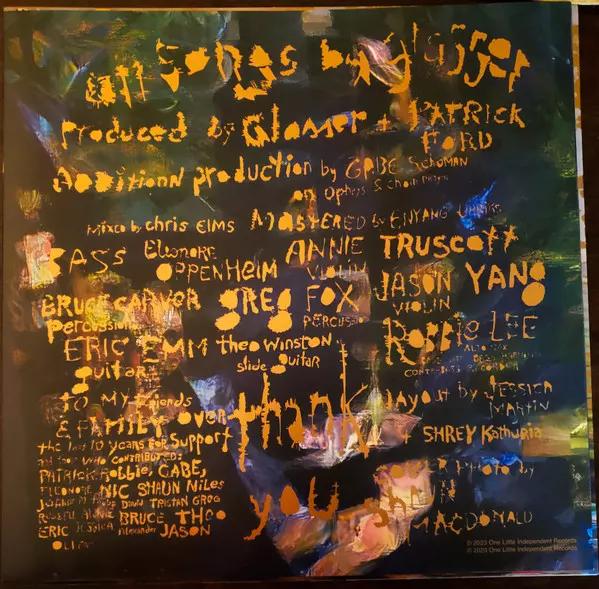 all songs by Glasser
Produced by Glasser + PATRICK FORD
Additionn production by GABE Schuman
on Ophers &
Mixed by chris Elms MASTERED by ENYANG
BASS Eleonore OPPENHEIM
ANNIE TRUSCOTT
VIOLIN
JASON YANG
VIOLIN
BRUCE CARVER
percussion
greg FOX
PERCUSSIO
RObbie LEE
ALTO SAX
ERIC EMM
guitar
theo WINSTON
slide guitar
TO MY friends
& FAMILY over
the last 10 years FOR support
and those who CONTRIBUTED:
PATRICK, Robbie, GABE,
ELEONORE, NIC SHAUN Niles
DAVID TRISTAN GREG
BRUCE THEO
ERIC JESSICA Alexander JASON
thank
you
layout by JESSICA
MARTIN
+ SHREY Kathuria
COVER PHOTO by
MACDONALD
℗ 2023 One Little Independent Records
© 2023 One Little Independent Records